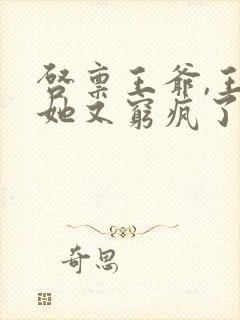 启禀王爷,王
她又窮疯了
奇思